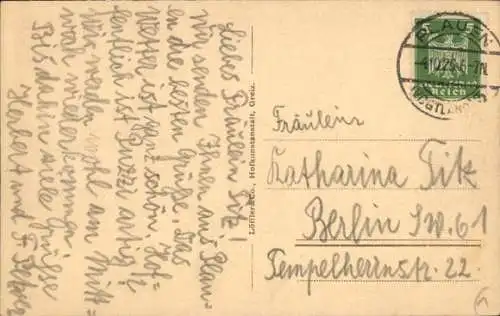 Liebes Fräulein Titz!
Wir senden Ihnen aus Plau-
en die besten Grüße. Das
Wetter ist ganz schön. Hof-
fentlich ist Putzi artig!
Wir werden wohl am Mitt-
woch wiederkommen
Bis dahin viele Grüße
Herbert und F.
Löffler & Co., Hofkunstanstalt, Greiz.
PLAUEN
(VOGTLAND)
Reich
Fräulein
Katharina Titz
Berlin S.W.61
Tempelherrnstr. 22.